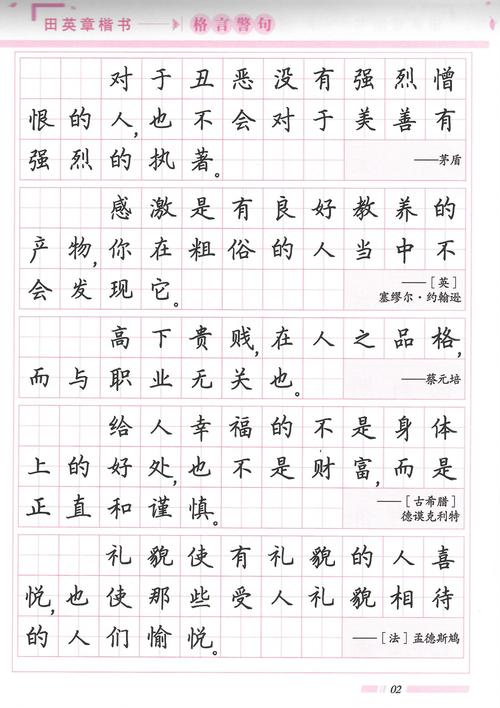 田英章楷书 格言警句
对于丑恶没有强烈憎
恨的人,也不会对于美善有
强烈的执著。
——茅盾
感激是有良好教养的
产物,你在粗俗的人当中不
会发现它。
——[英]
塞缪尔·约翰逊
高下贵贱,在人之品格,
而与职业无关也。
——蔡元培
给人幸福的不是身体
上的好处,也不是财富,而是
正直和谨慎。
——[古希腊]
德谟克利特
礼貌使有礼貌的人喜
悦,也使那些受人礼貌相待
的人们愉悦。
——[法]孟德斯鸠
02